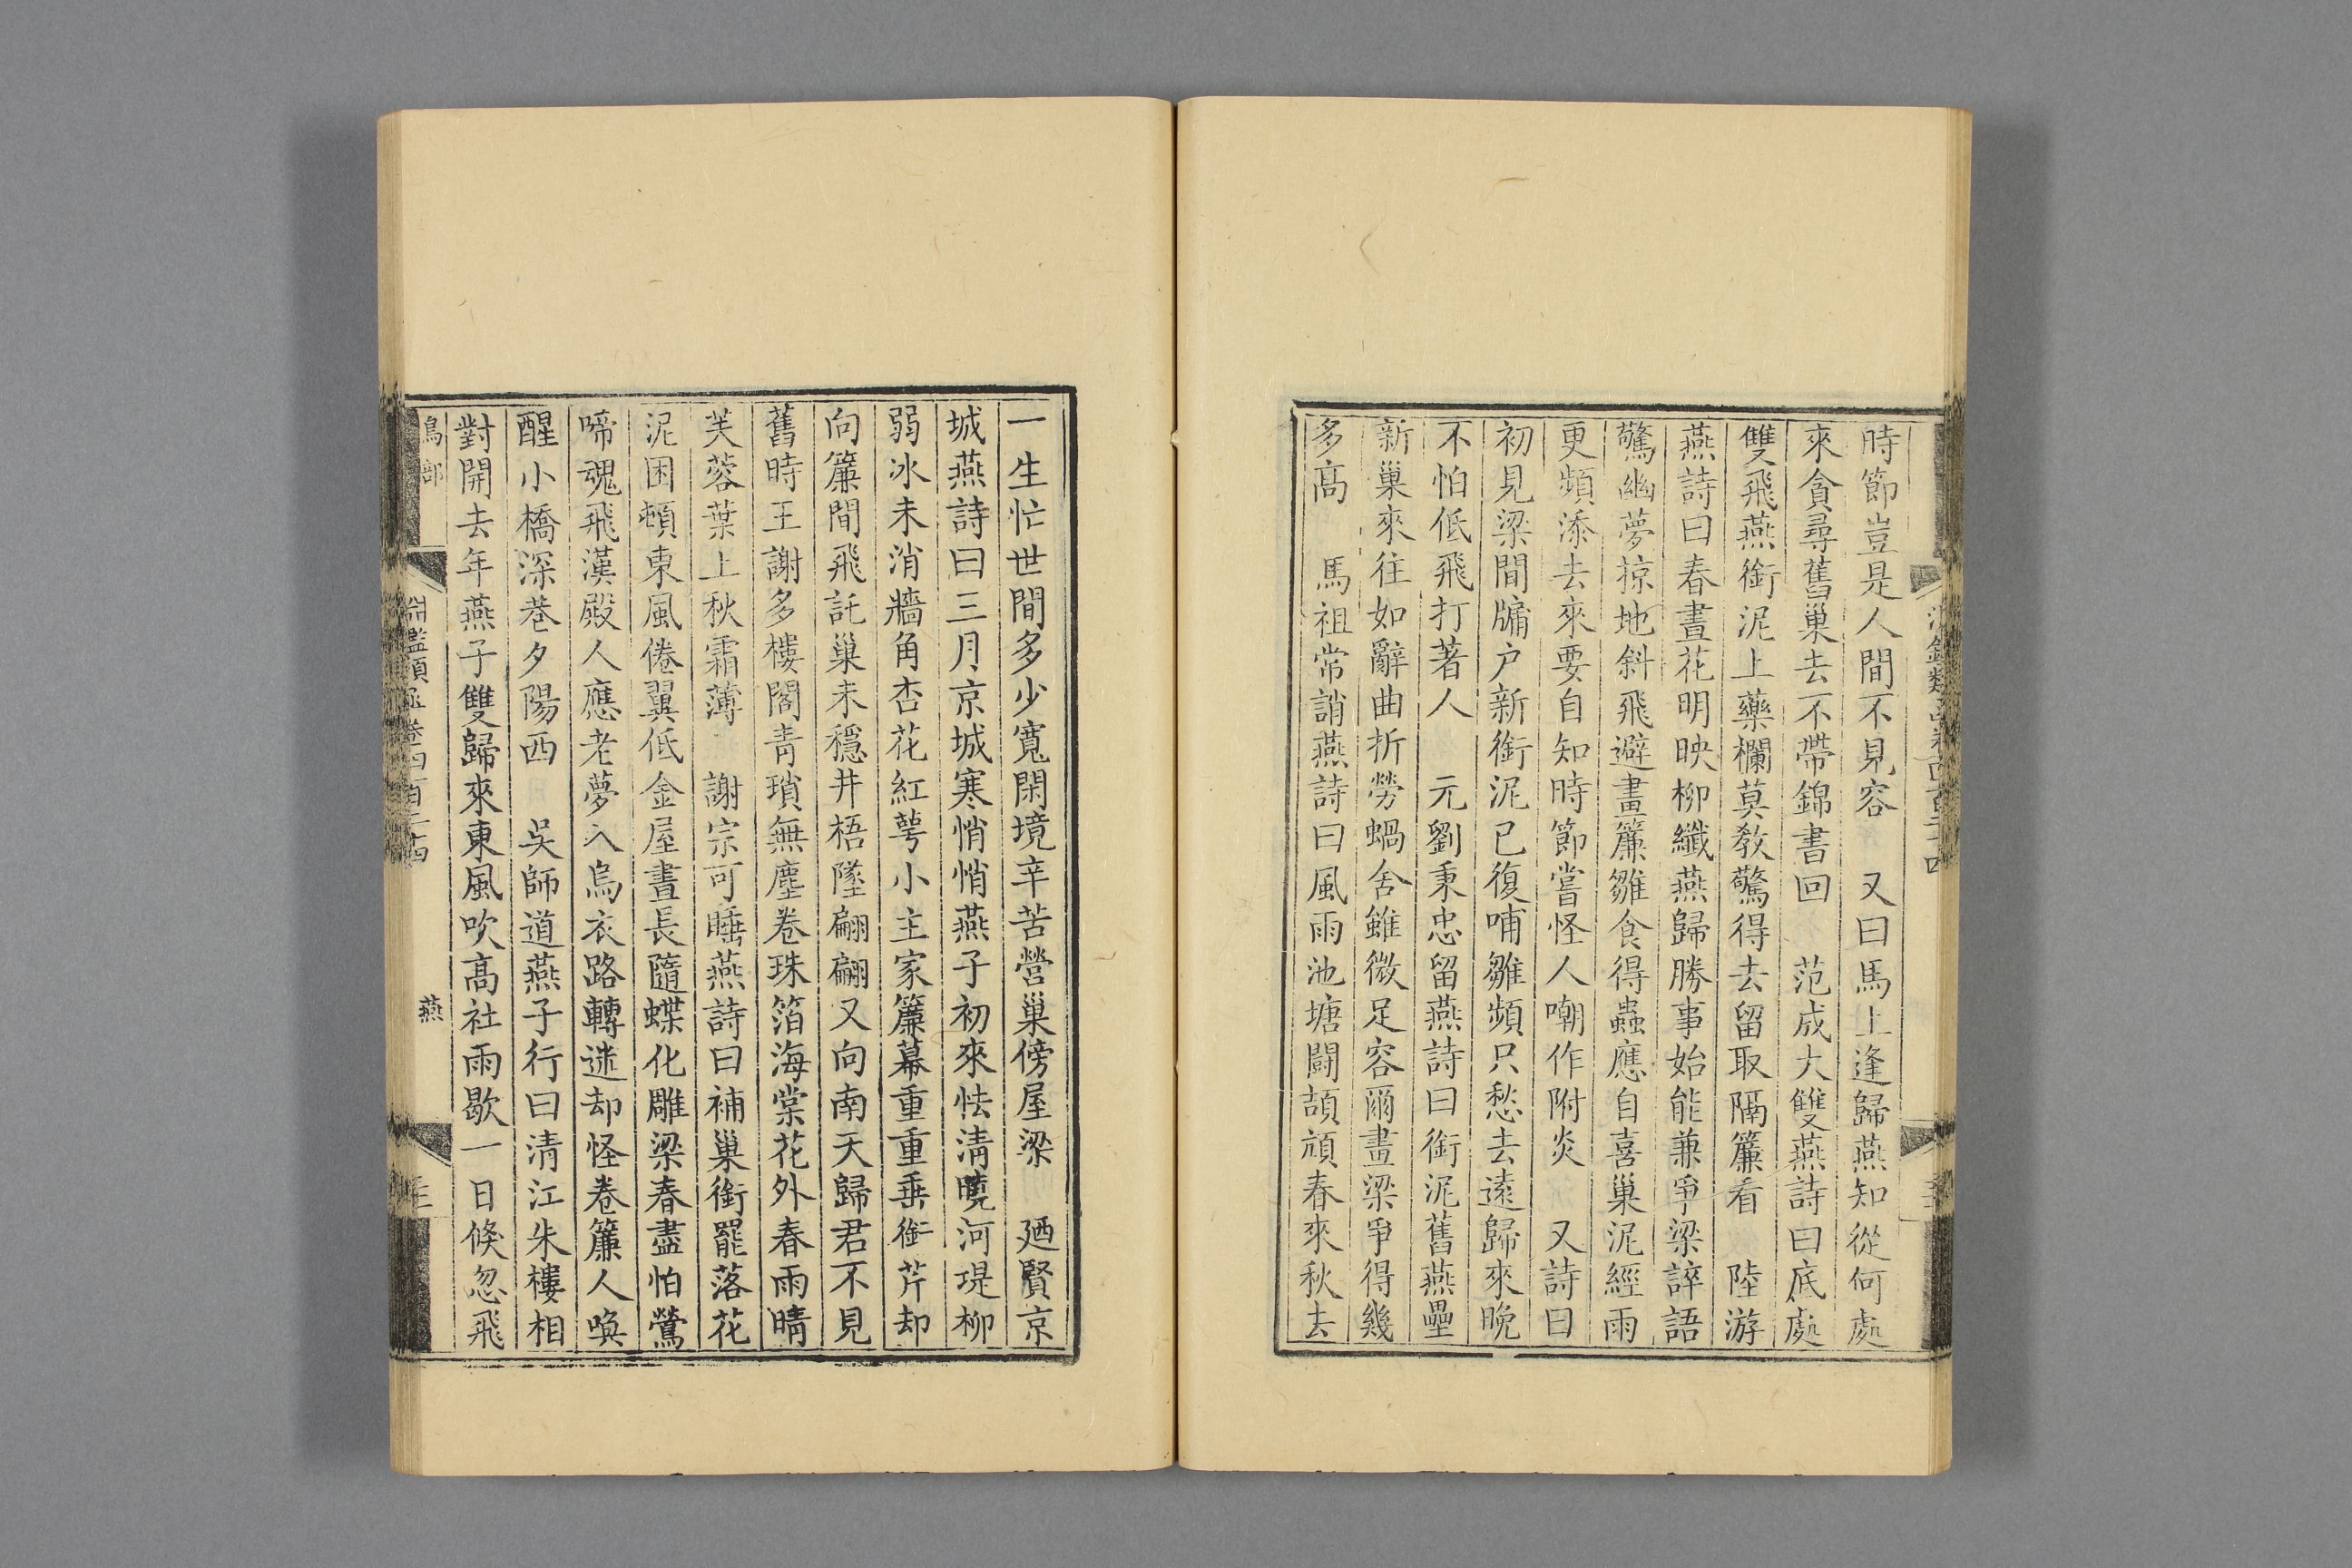 時節豈是人間不見容　又曰馬上逢歸燕知從何處
來貪尋舊巢去不帶錦書回　范成大雙燕詩曰底處
雙飛燕銜泥上藥欄莫教驚得去留取隔簾看　陸游
燕詩曰春晝花明映柳纖燕歸勝事始能兼爭梁誶語
驚幽夢掠地斜飛避畫簾雛食得蟲應自喜巢泥經雨
更頻添去來要自知時節嘗怪人嘲作附炎　又詩曰
初見梁間牖户新銜泥已復哺雛頻只愁去遠歸來晚
不怕低飛打著人　元劉秉忠留燕詩曰銜泥舊燕壘
新巢來往如辭曲折勞蝸舍雖微足容爾畫梁爭得幾
多高　馬祖常誚燕詩曰風雨池塘鬪頡頏春來秋去
一生忙世間多少寬閑境辛苦營巢傍屋梁　廼賢京
城燕詩曰三月京城寒悄悄燕子初來怯清曉河堤柳
弱冰未消牆角杏花紅萼小主家簾幕重重垂銜芹却
向簾間飛託巢未穩井梧墜翩翩又向南天歸君不見
舊時王謝多樓閣青瑣無塵卷珠箔海棠花外春雨晴
芙蓉葉上秋霜薄　謝宗可睡燕詩曰補巢銜罷落花
泥困頓東風倦翼低金屋晝長隨蝶化雕梁春盡怕鶯
啼魂飛漢殿人應老夢入烏衣路轉迷却怪卷簾人喚
醒小橋深巷夕陽西　吳師道燕子行曰清江朱樓相
對開去年燕子雙歸來東風吹高社雨歇一日倐忽飛
鳥部
淵鑑類函卷四百二十四
燕